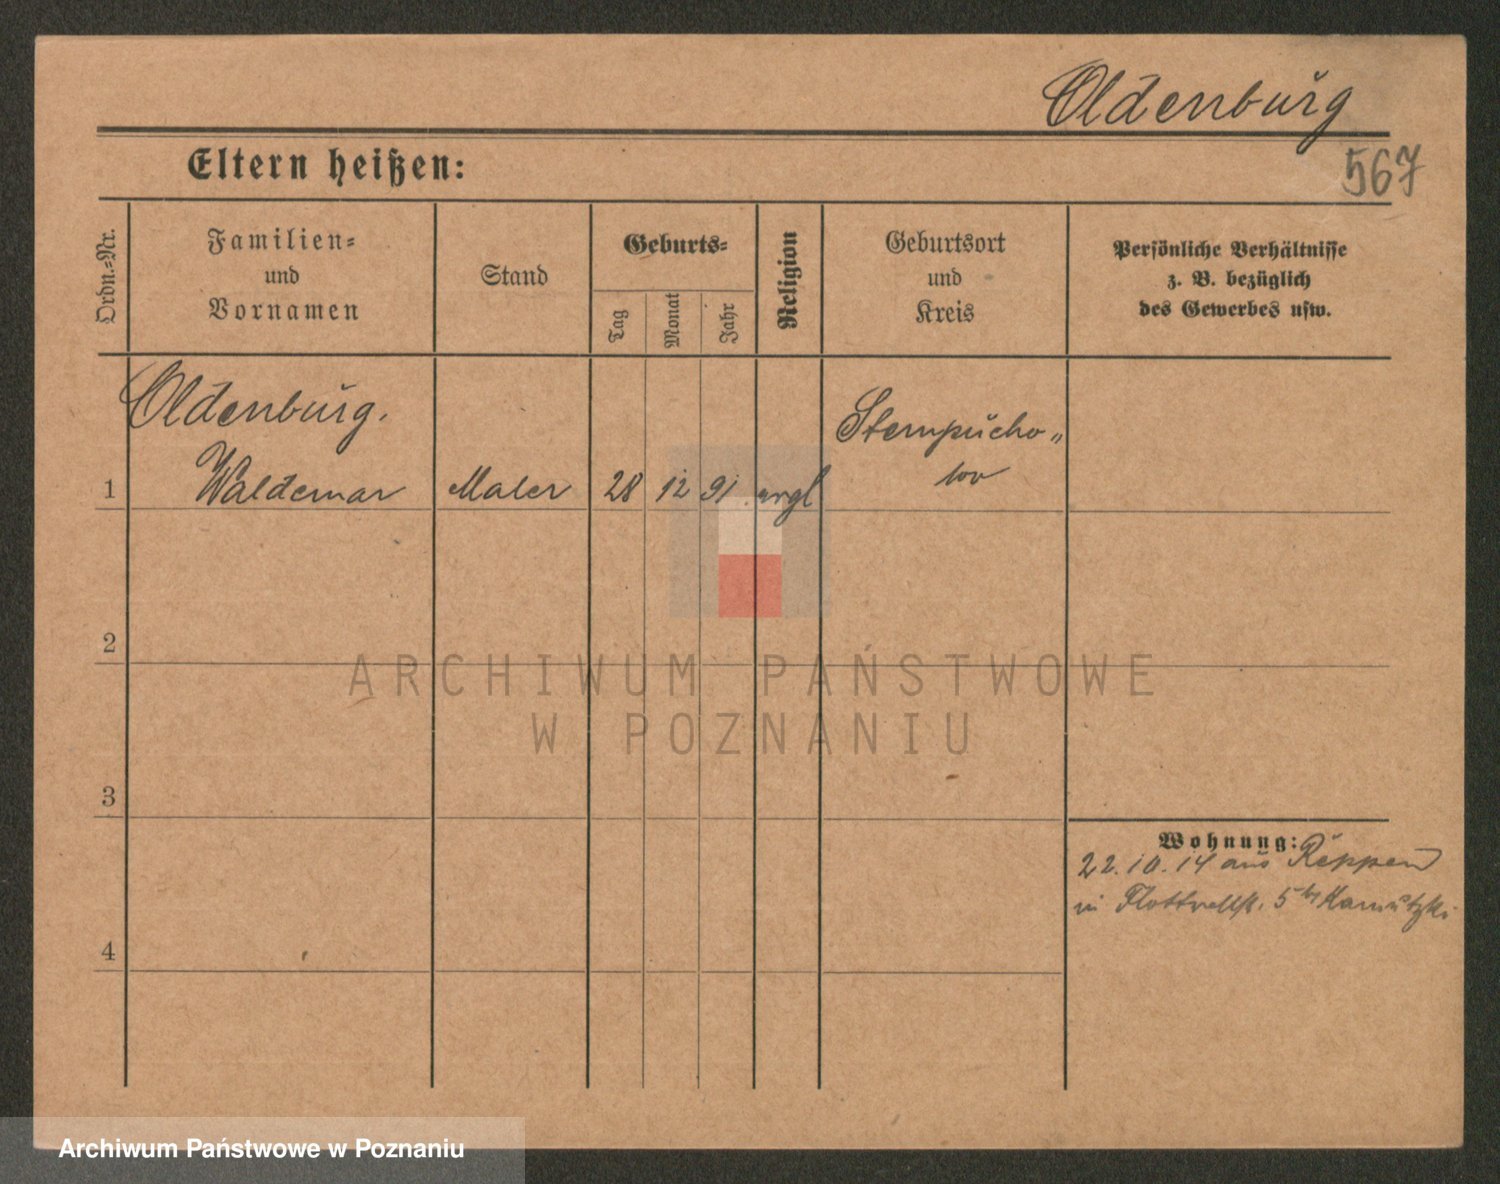 Oldenburg
567
Eltern heißen:
Ordn.-Nr.
Familien-
und
Vornamen
Stand
Geburts-
Tag
Monat
Jahr
Religion
Geburtsort
und
Kreis
Persönliche Verhältnisse
z. B. bezüglich
des Gewerbes usw.
Oldenburg.
1 Waldemar Maler 28 12 91 evgl
2
3
4
Wohnung:
22.10.14 aus Reppen
in Flottwellst. 5
ARCHIWUM PAŃSTWOWE
W POZNANIU
Archiwum Państwowe w Poznaniu